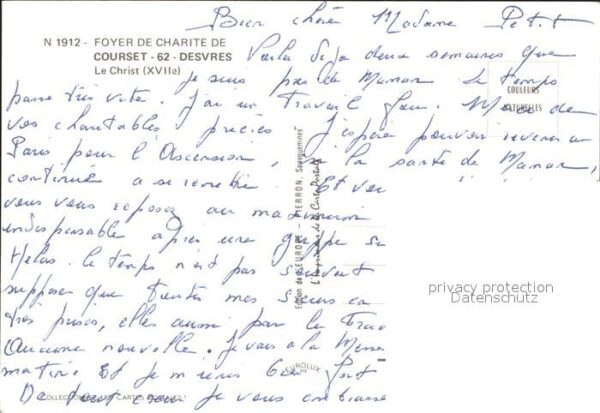 Bien chère Madame Petit
N 1912 - FOYER DE CHARITE DE
COURSET - 62 - DESVRES
Le Christ (XVIIe)
Voilà deja deux semaines que
je suis près de Maman. Le temps
passe très vite. J'ai un travail fou. Merci de
vos charitables prières. J'espère pouvoir revenir a
Paris pour l'Ascension, si la santé de Maman,
continue a se remettre. Et vous
vous vous reposez au maximum
indispensable après une grippe
Helas. le temps n'est pas souvent
suppose que toutes mes sœurs
très prises, elles aussi par le
Aucune nouvelle. Je vais a la Messe
matin. Et je m'unis
De tout cœur je vous embrasse
COULEURS
NATURELLES
Edition de l'EUROPE - PIERRON, Sarreguemines
L'Imprimerie de la Carte Postale
EUROLUX
privacy protection
Datenschutz